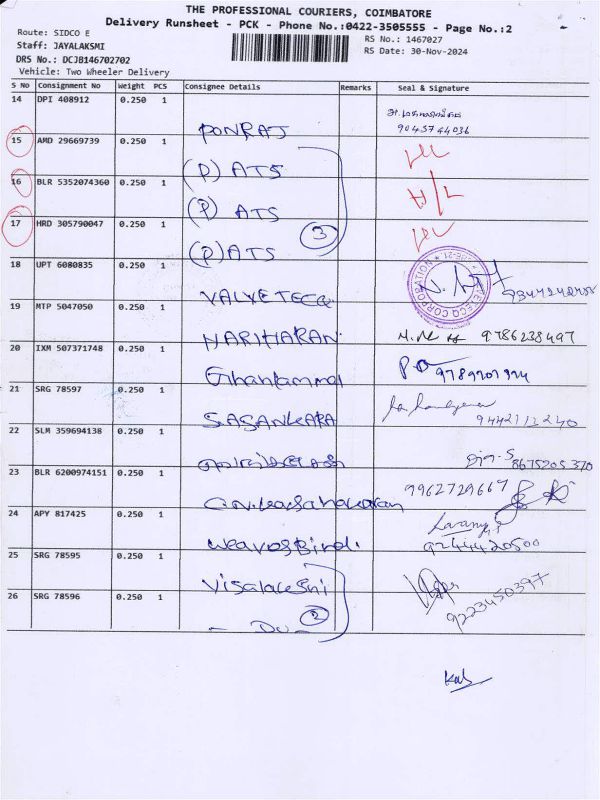 THE PROFESSIONAL COURIERS, COIMBATORE
Delivery Runsheet - PCK - Phone No.:0422-3505555 - Page No.:2
Route: SIDCO E
RS No.: 1467027
Staff: JAYALAKSMI
RS Date: 30-Nov-2024
DRS No.: DCJB146702702
Vehicle: Two Wheeler Delivery
S No Consignment No Weight PCS Consignee Details Remarks Seal & Signature
14 DPI 408912 0.250 1 PONRAJ 9045744036
15 AMD 29669739 0.250 1 (P) ATS
16 BLR 5352074360 0.250 1 (P) ATS
17 HRD 305790047 0.250 1 (P) ATS 3
18 UPT 6080835 0.250 1 VALVETECQ
19 MTP 5047050 0.250 1 HARIHARAN 9786238497
20 IXM 507371748 0.250 1
21 SRG 78597 0.250 1 SASANKARA 9442113240
22 SLM 359694138 0.250 1 8675205370
23 BLR 6200974151 0.250 1 9962729667
24 APY 817425 0.250 1 9244420500
25 SRG 78595 0.250 1 Visalakshi 9223450397
26 SRG 78596 0.250 1 - Do - 2